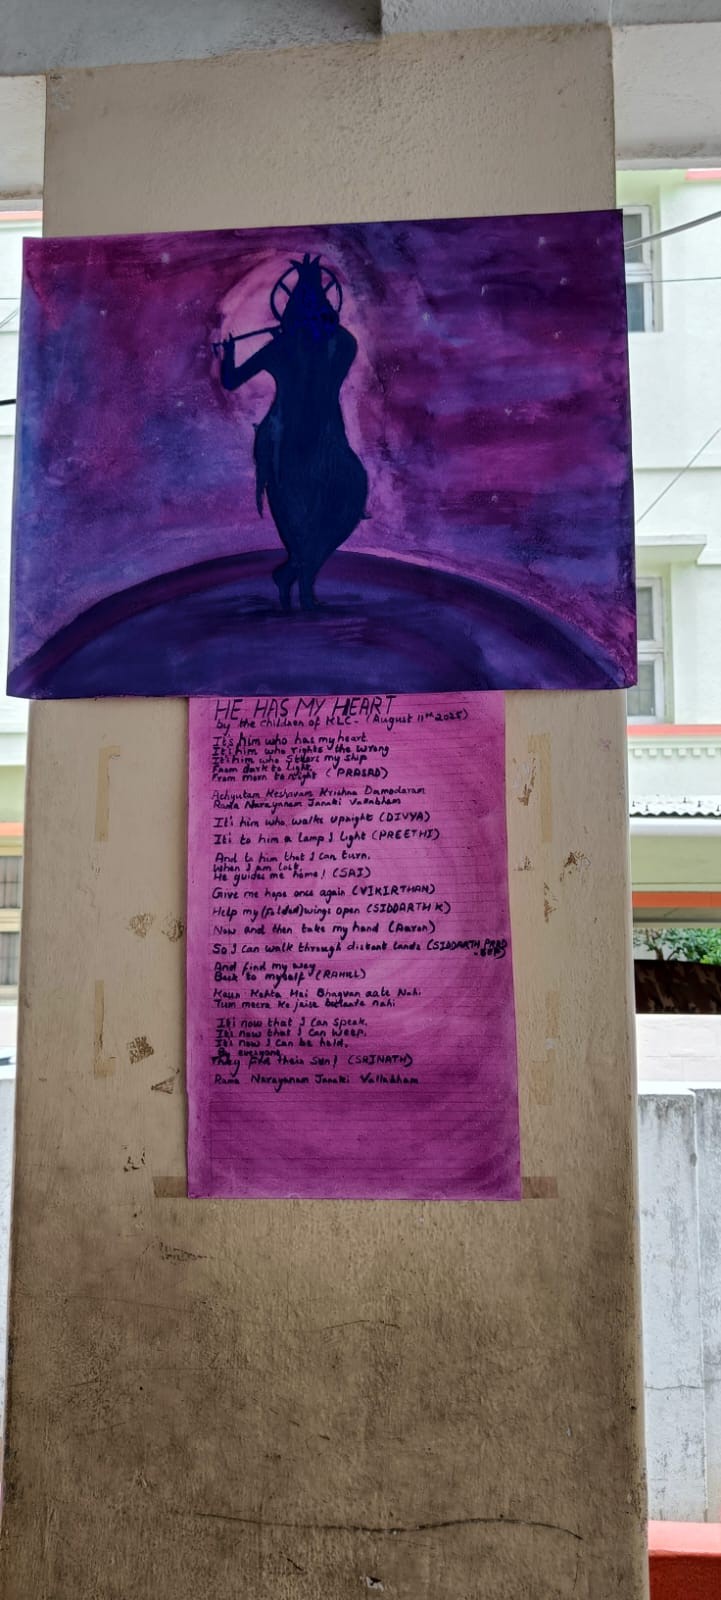 HE HAS MY HEART
by the children of KLC - (August 11th 2025)
It's him who has my heart
It's him who rights the wrong
It's him who steers my ship
From dark to light
From morn to night (PRASAD)
Achyutam Keshavam Krishna Damodaram
Rama Narayanam Janaki Vallabham
It's him who walks upright (DIVYA)
It's to him a lamp I light (PREETHI)
And to him that I can turn.
When I am lost,
He guides me home! (SAI)
Give me hope once again (VIKIRTHAN)
Help my (folded) wings open (SIDDARTH K)
Now and then take my hand (Aaron)
So I can walk through distant lands (SIDDARTH
And find my way
Back to myself (RAHUL)
Kaun Kehta Hai Bhagvan aate Nahi
Tum meera Ke jaise bulaate nahi
It's now that I can speak.
It's now that I can weep.
It's now I can be held,
By everyone,
They find their sun! (SRINATH)
Rama Narayanam Janaki Vallabham